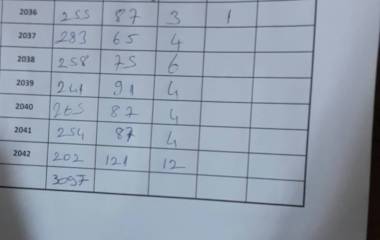 2036 255 87 3 1
2037 283 65 4
2038 258 75 6
2039 241 91 4
2040 265 87 4
2041 254 87 4
2042 202 121 12
3097